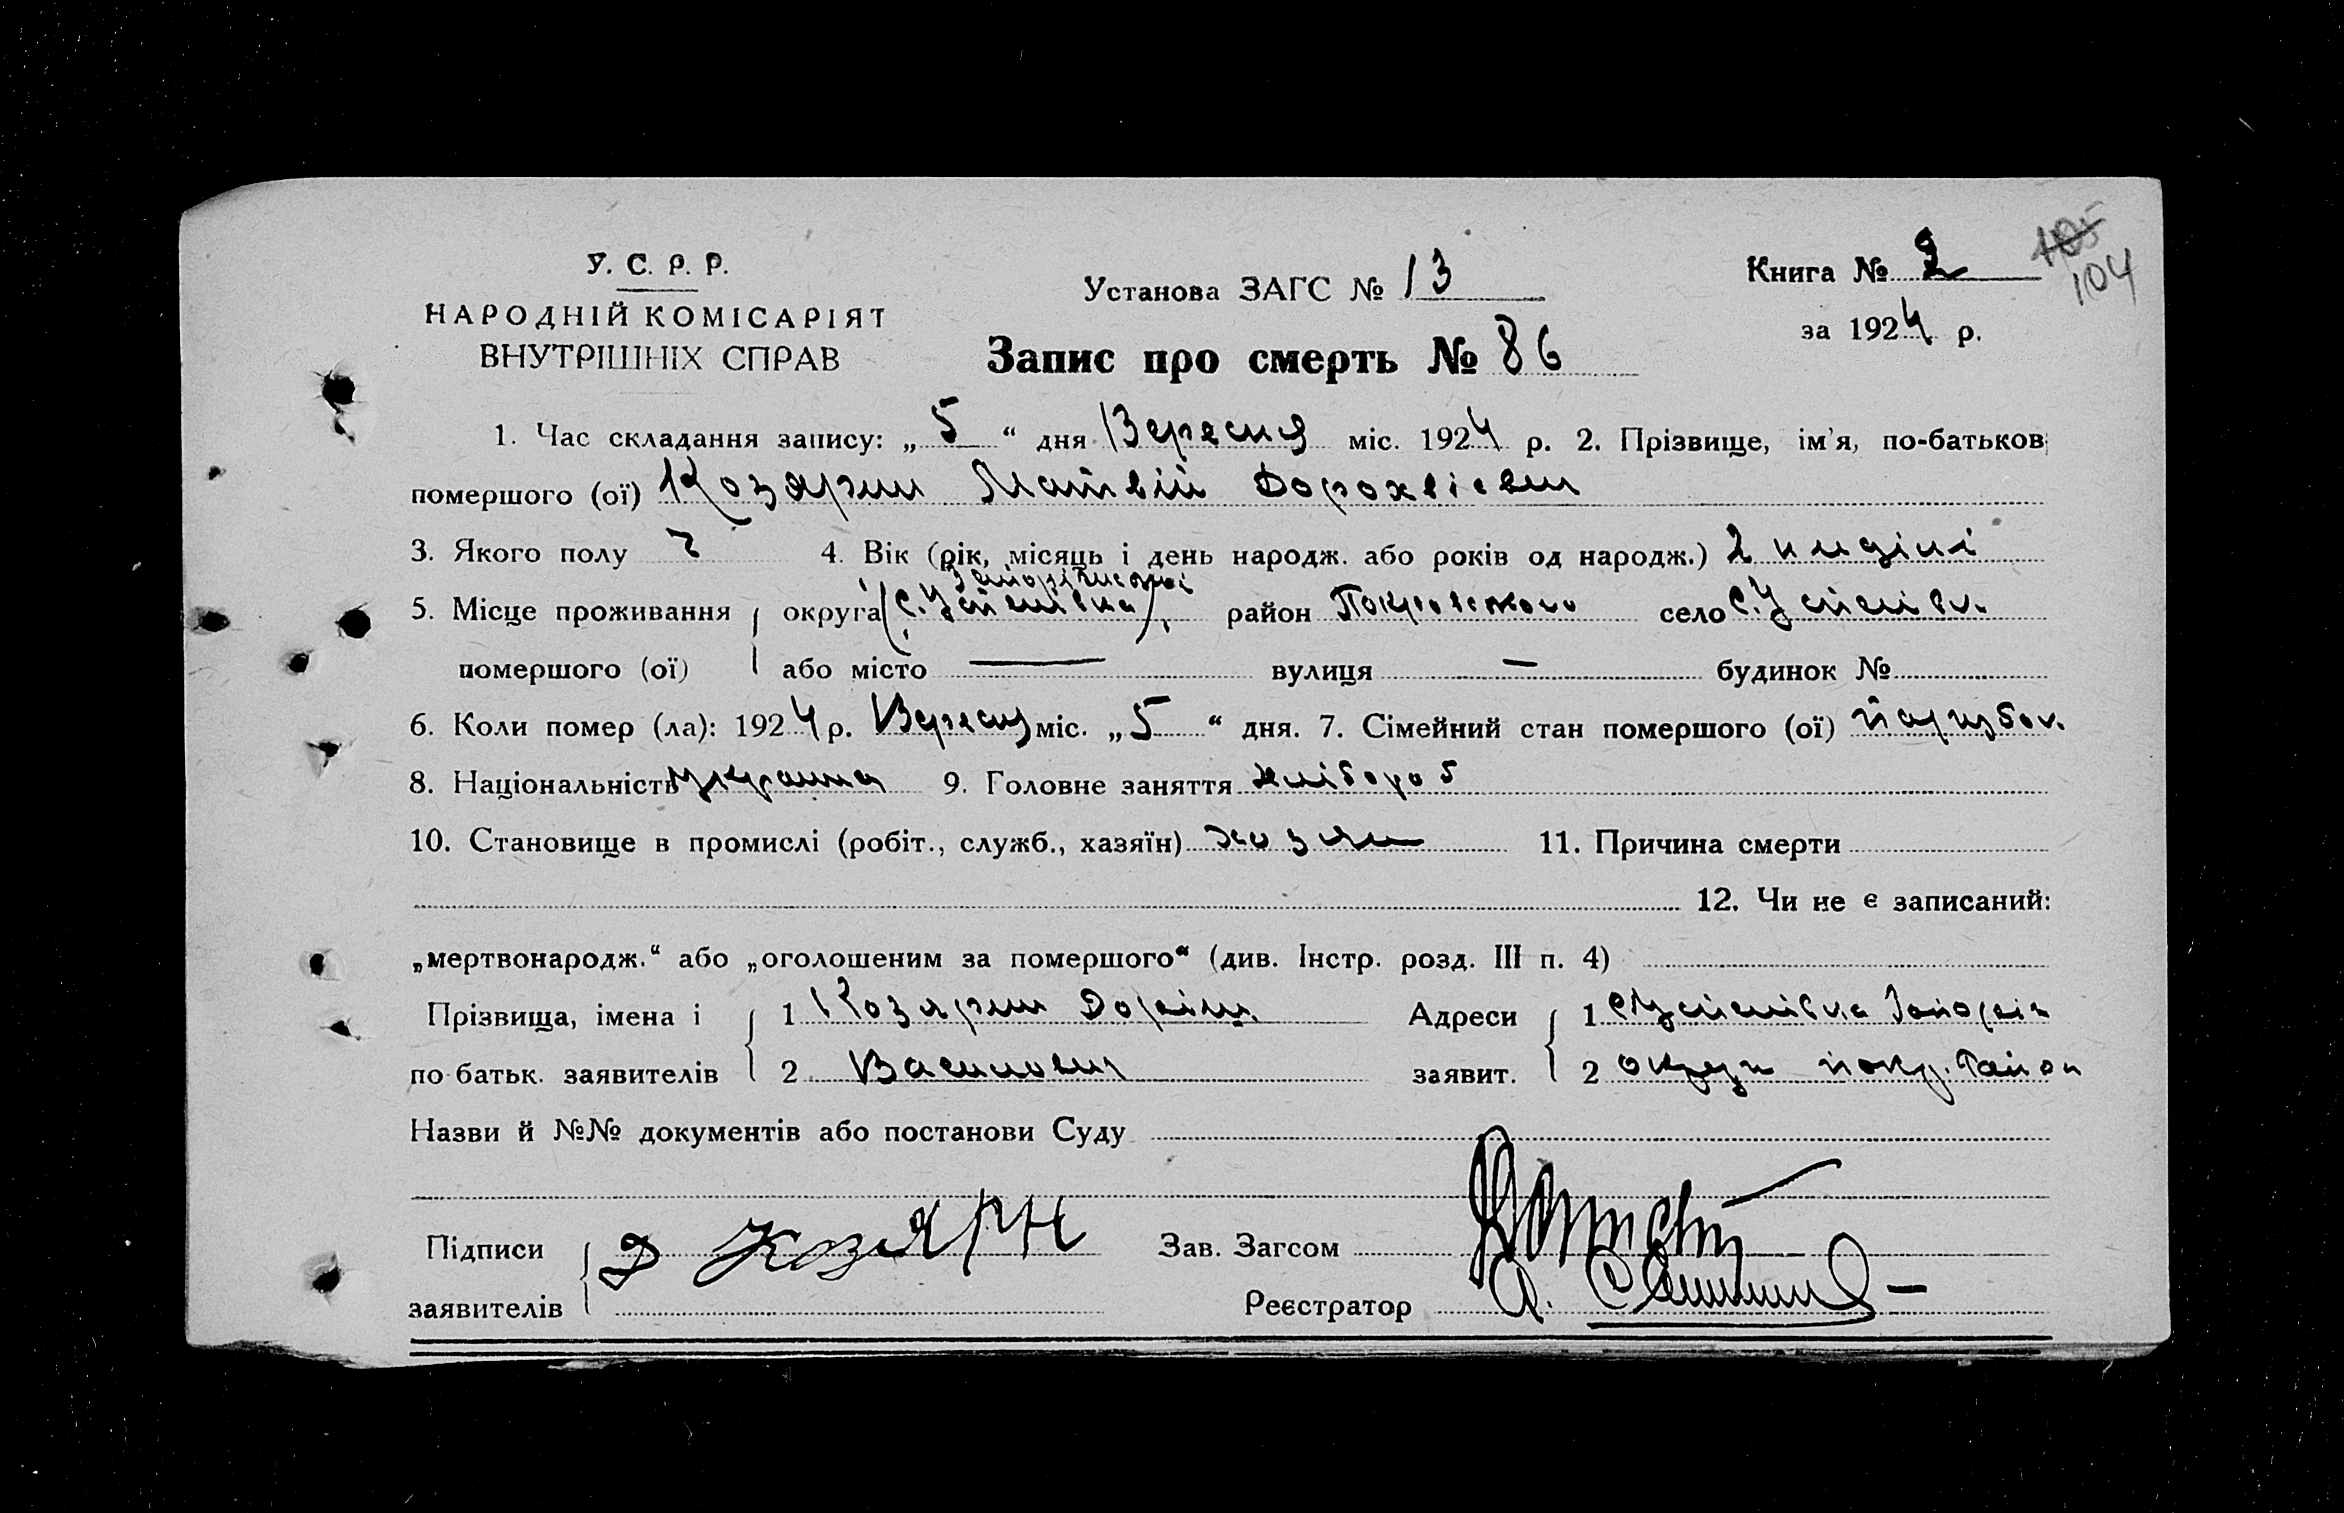 У. С. Р. Р.
НАРОДНІЙ КОМІСАРІЯТ
ВНУТРІШНІХ СПРАВ
Установа ЗАГС № 13
Запис про смерть № 86
Книга № 2
105
104
за 1924 р.
1. Час складання запису: „ 5 “ дня Вересня міс. 1924 р. 2. Прізвище, ім'я, по-батькові
помершого (ої) Козярин Матвій
3. Якого полу ч 4. Вік (рік, місяць і день народж. або років од народж.) 2 неділі
5. Місце проживання округа (с. Успенівка) район Покровського село с. Успенівк.
помершого (ої) або місто — вулиця — будинок №
6. Коли помер (ла): 1924 р. Вересня міс. „ 5 “ дня. 7. Сімейний стан помершого (ої) парубок.
8. Національність 9. Головне заняття хлібороб
10. Становище в промислі (робіт., служб., хазяїн) хозяин 11. Причина смерти
12. Чи не є записаний:
„мертвонародж.“ або „оголошеним за помершого“ (див. Інстр. розд. III п. 4)
Прізвища, імена і 1 Козярин Адреси 1 с Успенівка
по батьк. заявителів 2 Василович заявит. 2 округи покр. район
Назви й №№ документів або постанови Суду
Підписи Д Козярн Зав. Загсом
заявителів Реєстратор